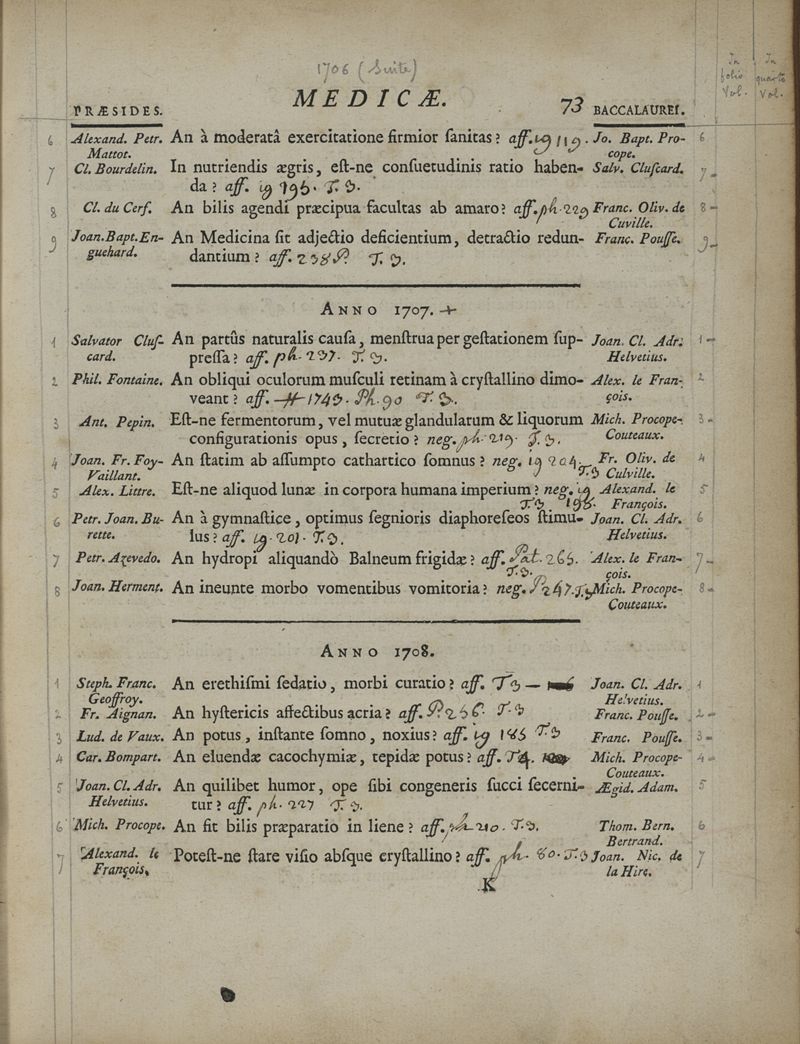 1706 (Suite)
MEDICÆ. 73
In folio Vol. In quarto Vol.
PRÆSIDES. BACCALAUREI.
6 Alexand. Petr. An à moderatâ exercitatione firmior ſanitas? aff. 119. Jo. Bapt. Pro- 6
Mattot. cope.
7 Cl. Bourdelin. In nutriendis ægris, eſt-ne conſuetudinis ratio haben- Salv. Cluſcard. 7
da? aff.
8 Cl. du Cerf. An bilis agendi præcipua facultas ab amaro? aff. ph. 229 Franc. Oliv. de 8
Cuville.
9 Joan. Bapt. En- An Medicina ſit adjectio deficientium, detractio redun- Franc. Pouſſe. 9
guehard. dantium? aff. 238 P.
ANNO 1707.
1 Salvator Cluſ- An partûs naturalis cauſa, menſtrua per geſtationem ſup- Joan. Cl. Adr. 1
card. preſſa? aff. ph. 237. Helvetius.
2 Phil. Fontaine. An obliqui oculorum muſculi retinam à cryſtallino dimo- Alex. le Fran- 2
veant? aff. 1743. Ph. 90 çois.
3 Ant. Pepin. Eſt-ne fermentorum, vel mutuæ glandularum & liquorum Mich. Procope- 3
configurationis opus, ſecretio? neg. ph. 219. Couteaux.
4 Joan. Fr. Foy- An ſtatim ab aſſumpto cathartico ſomnus? neg. 204. Fr. Oliv. de 4
Vaillant. Culville.
5 Alex. Littre. Eſt-ne aliquod lunæ in corpora humana imperium? neg. Alexand. le 5
198. François.
6 Petr. Joan. Bu- An à gymnaſtice, optimus ſegnioris diaphoreſeos ſtimu- Joan. Cl. Adr. 6
rette. lus? aff. 201. Helvetius.
7 Petr. Azevedo. An hydropi aliquandò Balneum frigidæ? aff. Pat. 265. Alex. le Fran- 7
çois.
8 Joan. Herment. An ineunte morbo vomentibus vomitoria? neg. P 247. Mich. Procope- 8
Couteaux.
ANNO 1708.
1 Steph. Franc. An erethiſmi ſedatio, morbi curatio? aff. Joan. Cl. Adr. 1
Geoffroy. Helvetius.
2 Fr. Aignan. An hyſtericis affectibus acria? aff. P. 256. Franc. Pouſſe. 2
3 Lud. de Vaux. An potus, inſtante ſomno, noxius? aff. Franc. Pouſſe. 3
4 Car. Bompart. An eluendæ cacochymiæ, tepidæ potus? aff. Mich. Procope- 4
Couteaux.
5 Joan. Cl. Adr. An quilibet humor, ope ſibi congeneris ſucci ſecerni- Ægid. Adam. 5
Helvetius. tur? aff. ph. 227
6 Mich. Procope. An fit bilis præparatio in liene? aff. ph. 210. Thom. Bern. 6
Bertrand.
7 Alexand. le Poteſt-ne ſtare viſio abſque cryſtallino? aff. ph. 80. Joan. Nic. de 7
François. la Hire.
K